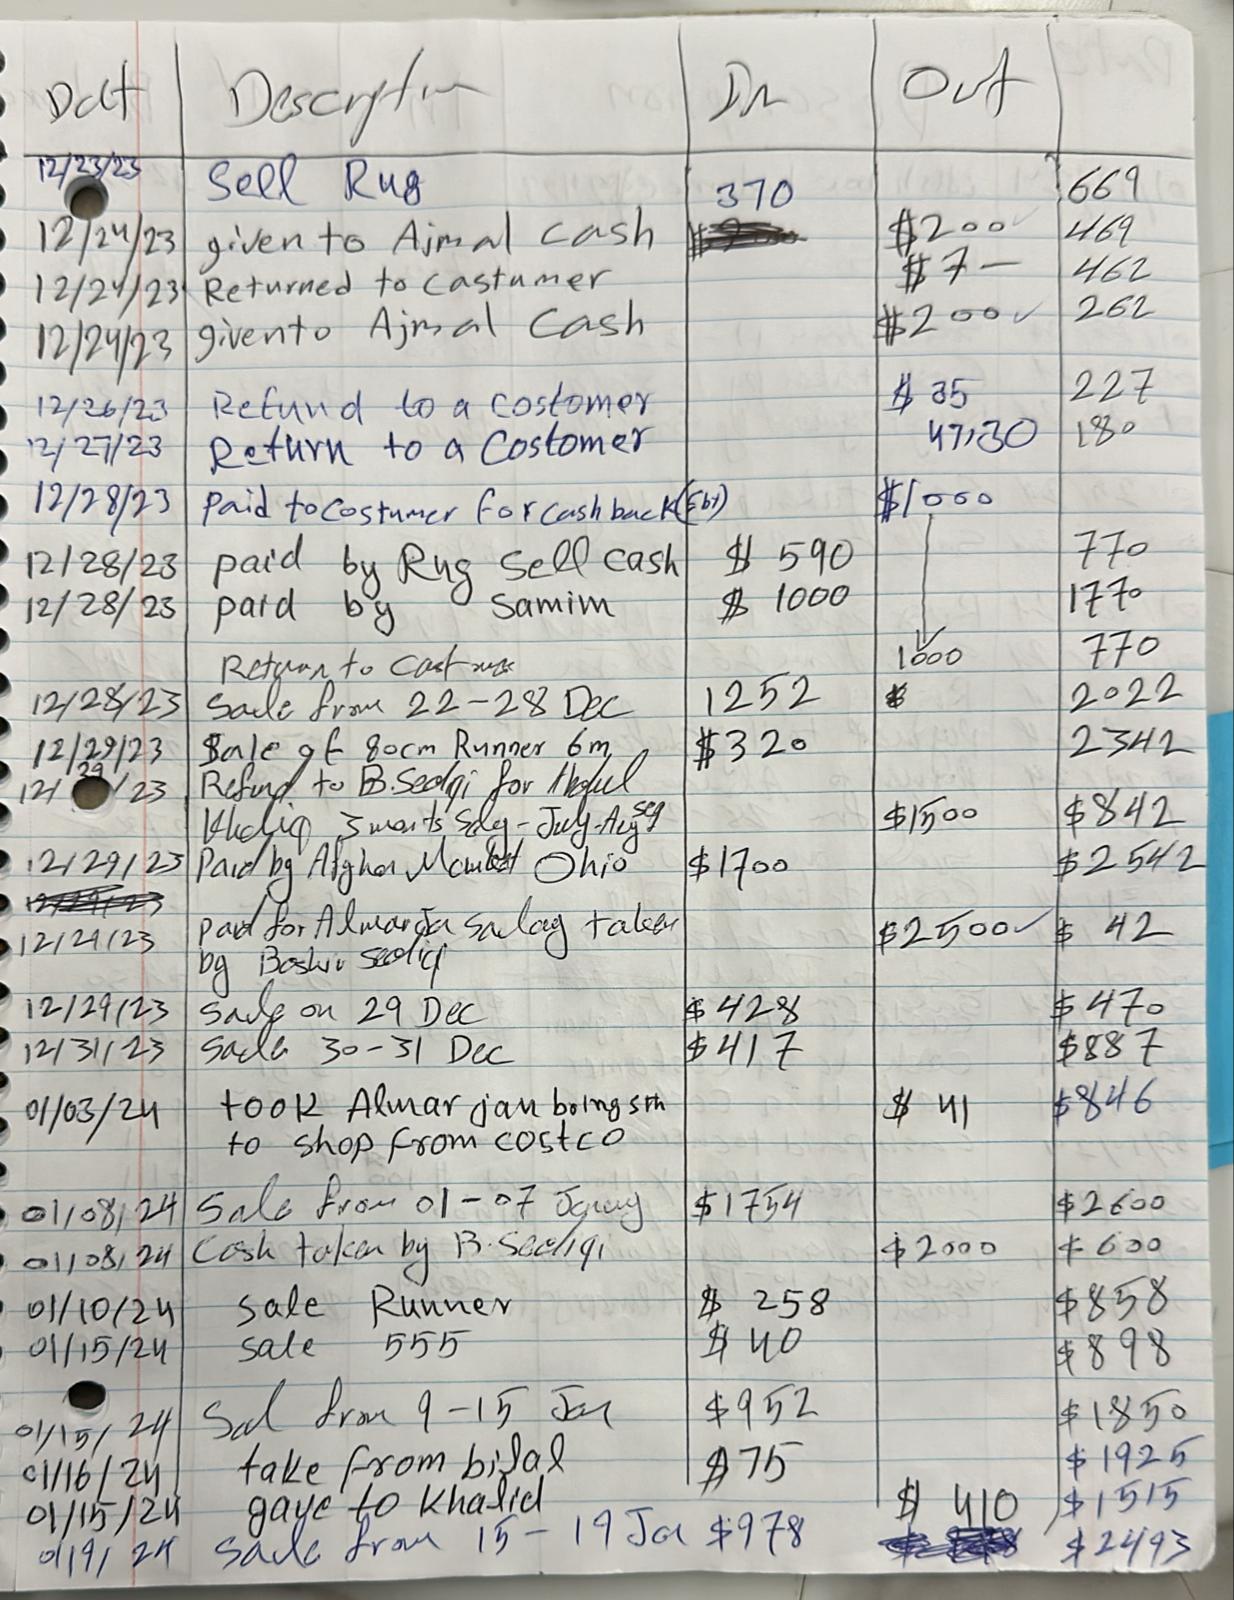 Date Description In Out
12/23/23 Sell Rug 370 669
12/24/23 given to Ajmal cash $200 469
12/24/23 Returned to Castumer $7— 462
12/24/23 given to Ajmal Cash $200 262
12/26/23 Refund to a costomer $35 227
12/27/23 Return to a Costomer 47,30 180
12/28/23 paid to costumer for cash back (Ebt) $1000
12/28/23 paid by Rug sell cash $590 770
12/28/23 paid by Samim $1000 1770
Return to 1000 770
12/28/23 Sale from 22-28 Dec 1252 $ 2022
12/29/23 Sale of 80cm Runner 6m $320 2342
12/29/23 Refund to B.Sediqi for
3 - July-Aug $1500 $842
12/29/23 Paid by Afghan Ohio $1700 $2542
12/29/23 paid for Almarjan taken $2500 $ 42
by
12/29/23 Sale on 29 Dec $428 $470
12/31/23 Sale 30-31 Dec $417 $887
01/03/24 took Almarjan boing sth $41 $846
to shop from costco
01/08/24 Sale from 01-07 $1754 $2600
01/08/24 Cash taken by B.Sediqi $2000 $600
01/10/24 sale Runner $258 $858
01/15/24 sale 555 $40 $898
01/15/24 Sal from 9-15 Jan $952 $1850
01/16/24 take from bilal $75 $1925
01/15/24 gave to Khalid $410 $1515
01/9/24 Sale from 15-19 Ja $978 $2493